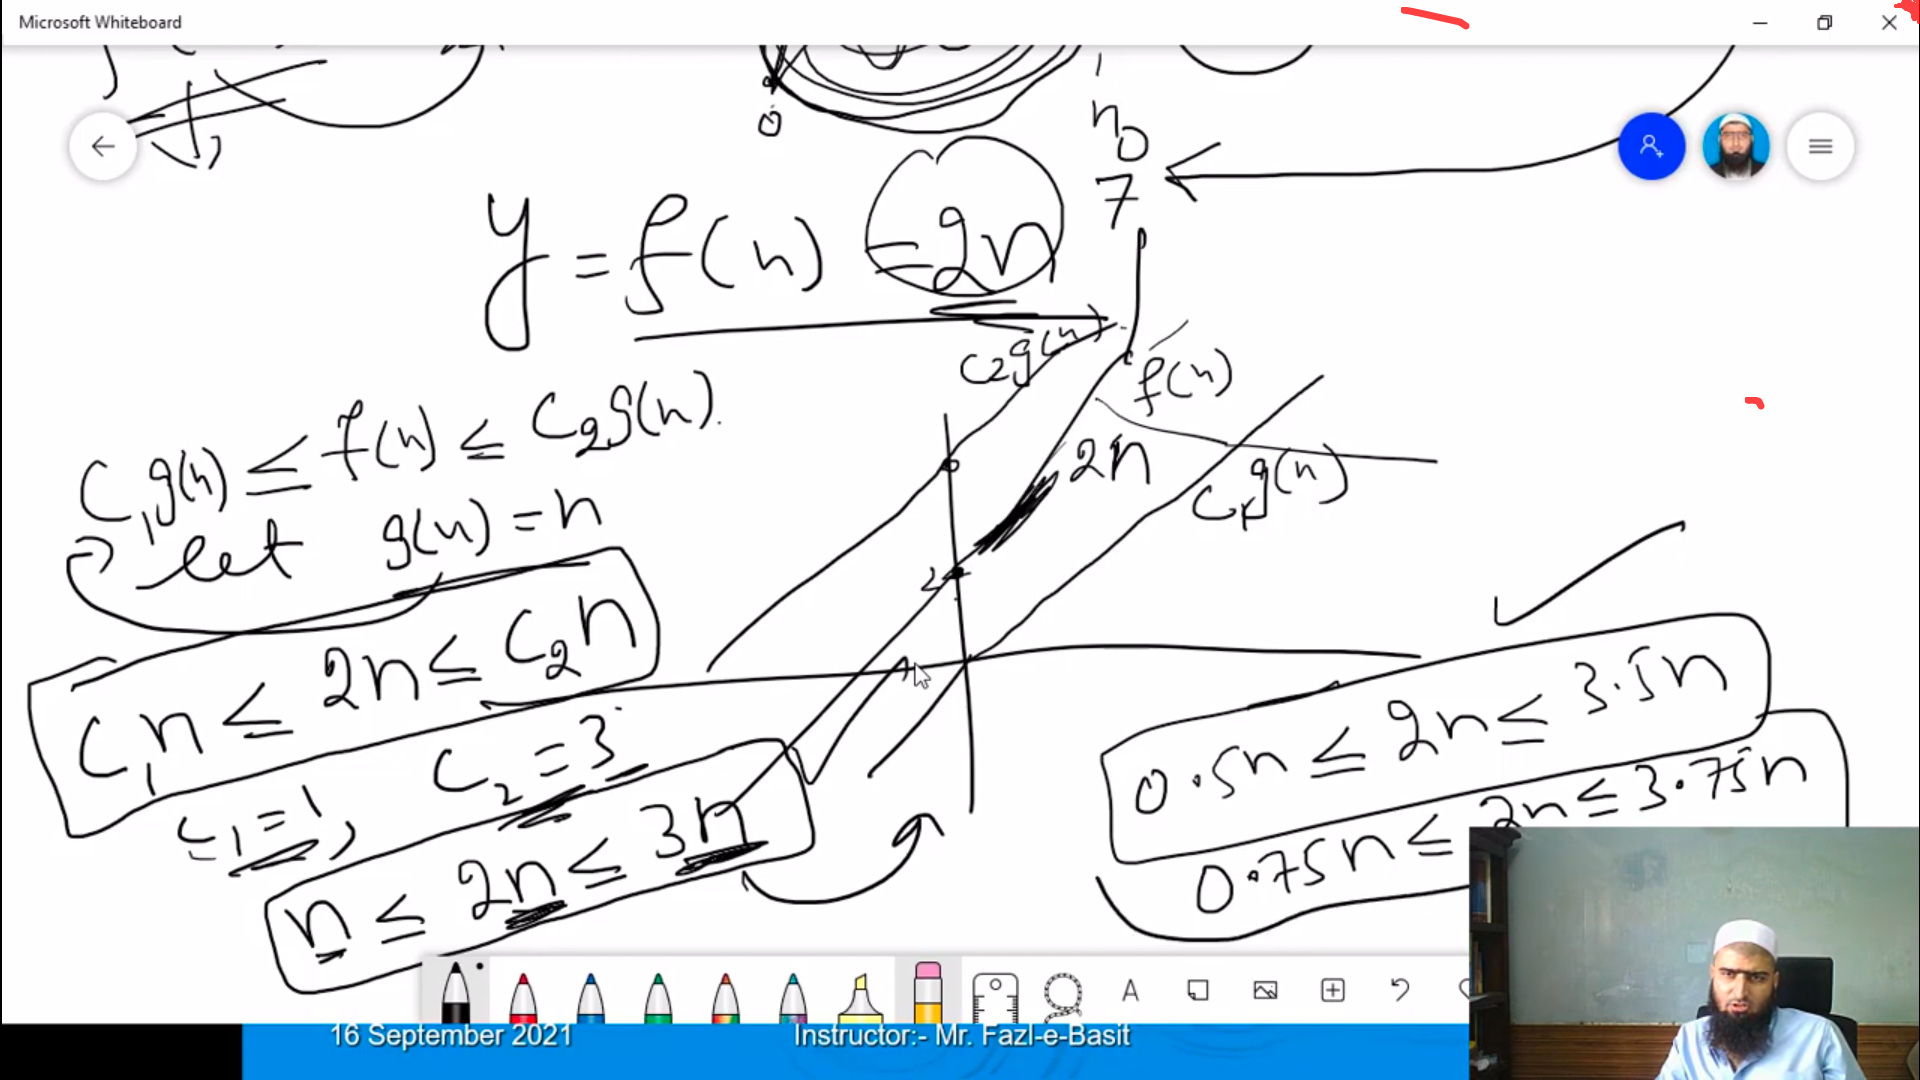 Microsoft Whiteboard
0
n0
7
y = f(n) = 2n
C2g(n)
f(n)
C1g(n) ≤ f(n) ≤ C2g(n).
2n
C1g(n)
let g(n) = n
2
C1n ≤ 2n ≤ C2n
0.5n ≤ 2n ≤ 3.5n
C1 = 1, C2 = 3
0.75n ≤ 2n ≤ 3.75n
n ≤ 2n ≤ 3n
A
16 September 2021
Instructor:- Mr. Fazl-e-Basit